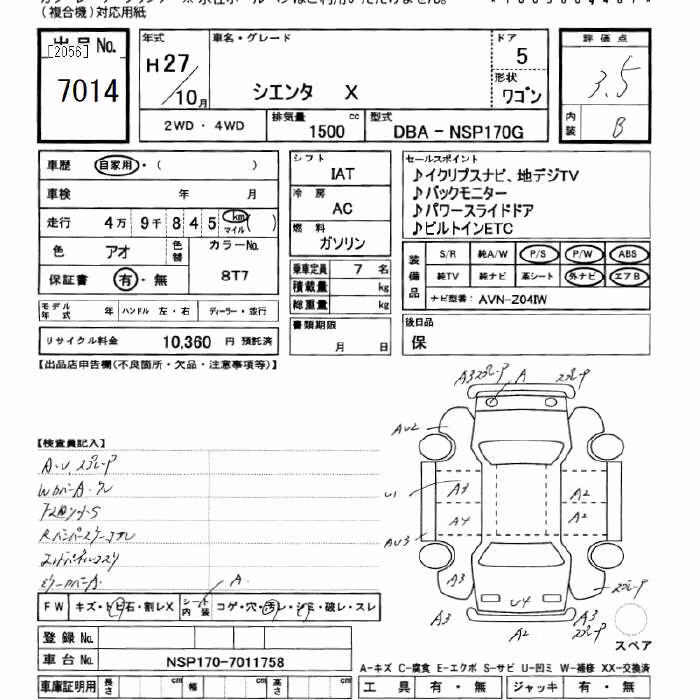 (複合機)対応用紙
出品 No.
[2056]
7014
年式
H27
/10月
車名・グレード
シエンタ X
ドア
5
形状
ワゴン
2WD ・ 4WD
排気量
1500 cc
型式
DBA - NSP170G
評価点
3.5
内装
B
車歴 自家用・( )
車検 年 月
走行 4万 9千 8 4 5 km マイル ( )
色 アオ 色替 カラーNo.
8T7
保証書 有・無
モデル年式 年 ハンドル 左・右 ディーラー・並行
リサイクル料金 10,360 円 預託済
シフト
IAT
冷房
AC
燃料
ガソリン
乗車定員 7 名
積載量 kg
総重量 kg
書類期限
月 日
セールスポイント
♪イクリプスナビ、地デジTV
♪バックモニター
♪パワースライドドア
♪ビルトインETC
装備品
S/R 純A/W P/S P/W ABS
純TV 純ナビ 革シート 外ナビ エアB
ナビ型番: AVN-Z04IW
後日品
保
【出品店申告欄(不良箇所・欠品・注意事項等)】
【検査員記入】
A・U, スプレーP
A3 スプレーP A スプレーP
AU2
U1
A3
A2
A4
A2
AU3
A3
A2
スプレーP
U4
A3
A2
A3
スプレーP
A.
FW キズ・トビ石・割レX シート内装 コゲ・穴・汚レ・シミ・破レ・スレ
スペア
登録 No.
車台 No. NSP170-7011758
車庫証明用 長さ cm 幅 cm 高さ cm
A-キズ C-腐食 E-エクボ S-サビ U-凹ミ W-補修 XX-交換済
工具 有・無 ジャッキ 有・無